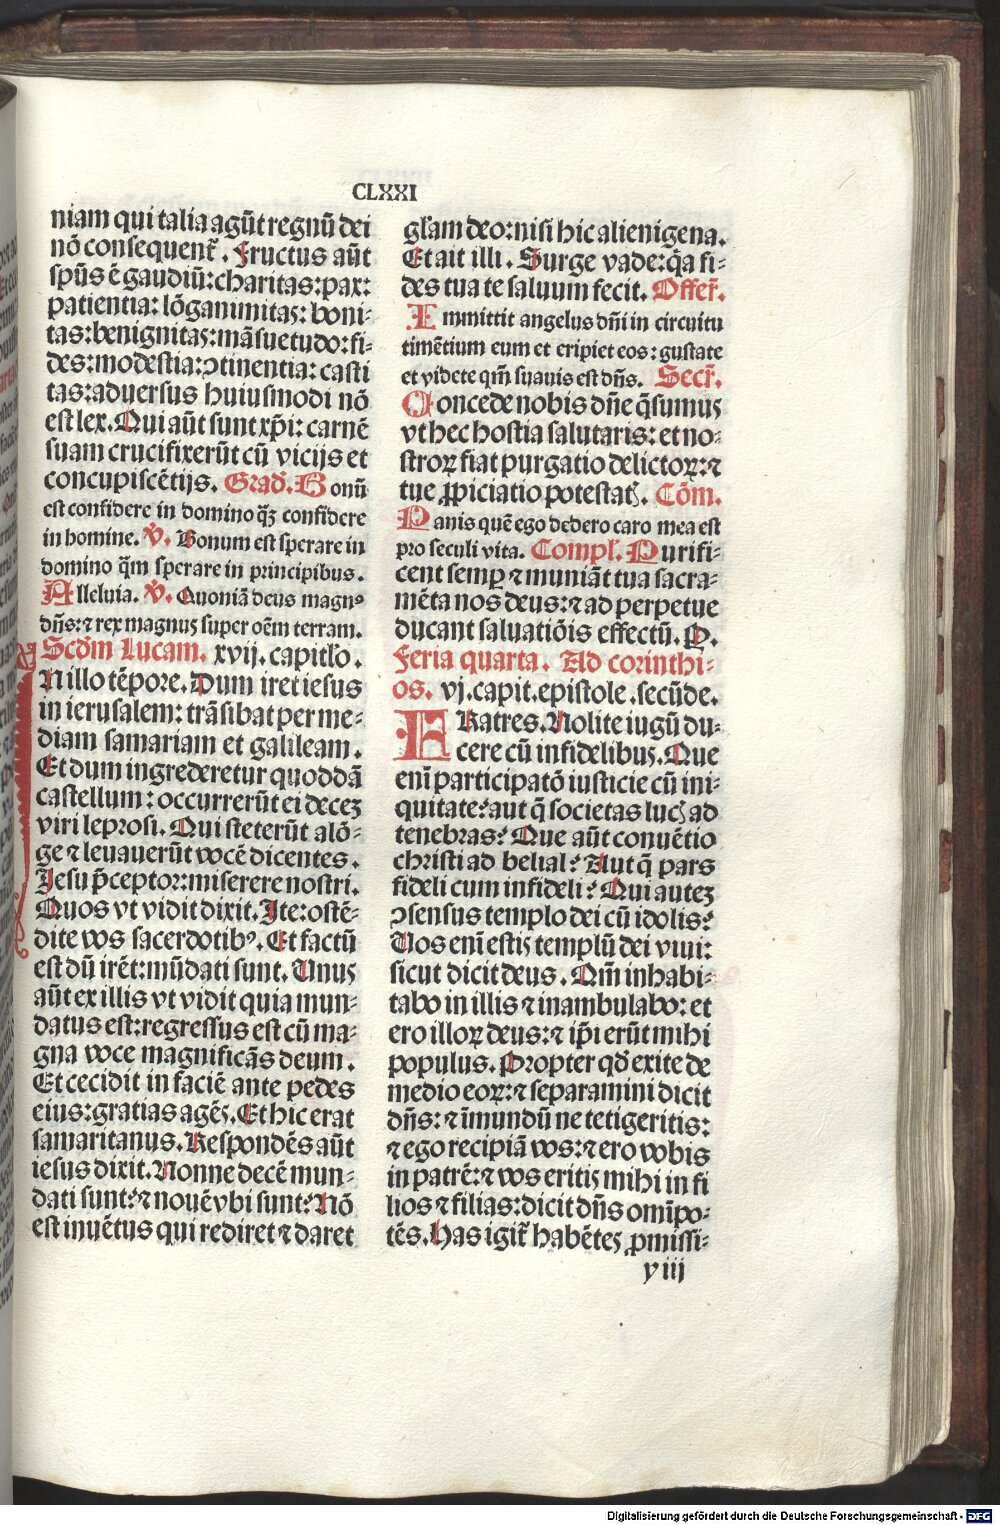 CLXXI
niam qui talia agūt regnū dei
nō consequent᷒. Fructus aūt
spūs ē gaudiū: charitas: pax:
patientia: lōganimitas: boni-
tas: benignitas: māsuetudo: fi-
des: modestia: ꝯtinentia: casti
tas: adversus huiusmodi nō
est lex. Qui aūt sunt xp̄i: carnē
suam crucifixerūt cū vicijs et
concupiscētijs. Grad̄. Bonū
est confidere in domino qꝫ confidere
in homine. V̄. Bonum est sperare in
domino q̄m sperare in principibus.
Alleluia. V̄. Quoniā deus magnꝰ
dn̄s: ⁊ rex magnus super oēm terram.
Scd̄m Lucam. xvij. capitlo.
IN illo tēpore. Dum iret iesus
in ierusalem: trāsibat per me-
diam samariam et galileam.
Et dum ingrederetur quoddā
castellum: occurrerūt ei deceꝫ
viri leprosi. Qui steterūt alō-
ge ⁊ levaverūt vocē dicentes.
Iesu p̄ceptor: miserere nostri.
Quos vt vidit dixit. Ite: ostē-
dite vos sacerdotibꝰ. Et factū
est dū irēt: mūdati sunt. Unus
aūt ex illis vt vidit quia mun-
datus est: regressus est cū ma-
gna voce magnificās deum.
Et cecidit in faciē ante pedes
eius: gratias agēs. Et hic erat
samaritanus. Respondēs aūt
iesus dixit. Nonne decē mun-
dati sunt? ⁊ novē vbi sunt? Nō
est invētus qui rediret ⁊ daret
gl̄am deo: nisi hic alienigena.
Et ait illi. Surge vade: q̄a fi-
des tua te saluum fecit. Offer᷒.
Immittit angelus dn̄i in circuitu
timētium eum et eripiet eos: gustate
et videte qm̄ suavis est dn̄s. Secr᷒.
Concede nobis dn̄e q̄sumus
vt hec hostia salutaris: et no-
stroꝝ fiat purgatio delictoꝝ: ⁊
tue ꝓpiciatio potestatꝭ. Cōm.
Panis quē ego dedero caro mea est
pro seculi vita. Compl̄. Purifi-
cent semꝑ ⁊ muniāt tua sacra-
mēta nos deus: ⁊ ad perpetue
ducant saluatiōis effectū. P.
Feria quarta. Ad corinthi-
os. vj. capit. epistole. secūde.
FRatres. Nolite iugū du-
cere cū infidelibus. Que
enī participatō iusticie cū ini-
quitate? aut q̄ societas lucꝭ ad
tenebras? Que aūt convētio
christi ad belial? Aut q̄ pars
fideli cum infideli? Qui auteꝫ
ꝯsensus templo dei cū idolis?
Vos enī estis templū dei vivi:
sicut dicit deus. Qm̄ inhabi-
tabo in illis ⁊ inambulabo: et
ero illoꝝ deus: ⁊ ip̄i erūt mihi
populus. Propter qd̄ exite de
medio eoꝝ: ⁊ separamini dicit
dn̄s: ⁊ īmundū ne tetigeritis:
⁊ ego recipiā vos: ⁊ ero vobis
in patrē: ⁊ vos eritis mihi in fi
lios ⁊ filias: dicit dn̄s omīpo-
tēs. Has igit᷒ habētes ꝓmissi-
y iii
Digitalisierung gefördert durch die Deutsche Forschungsgemeinschaft - DFG